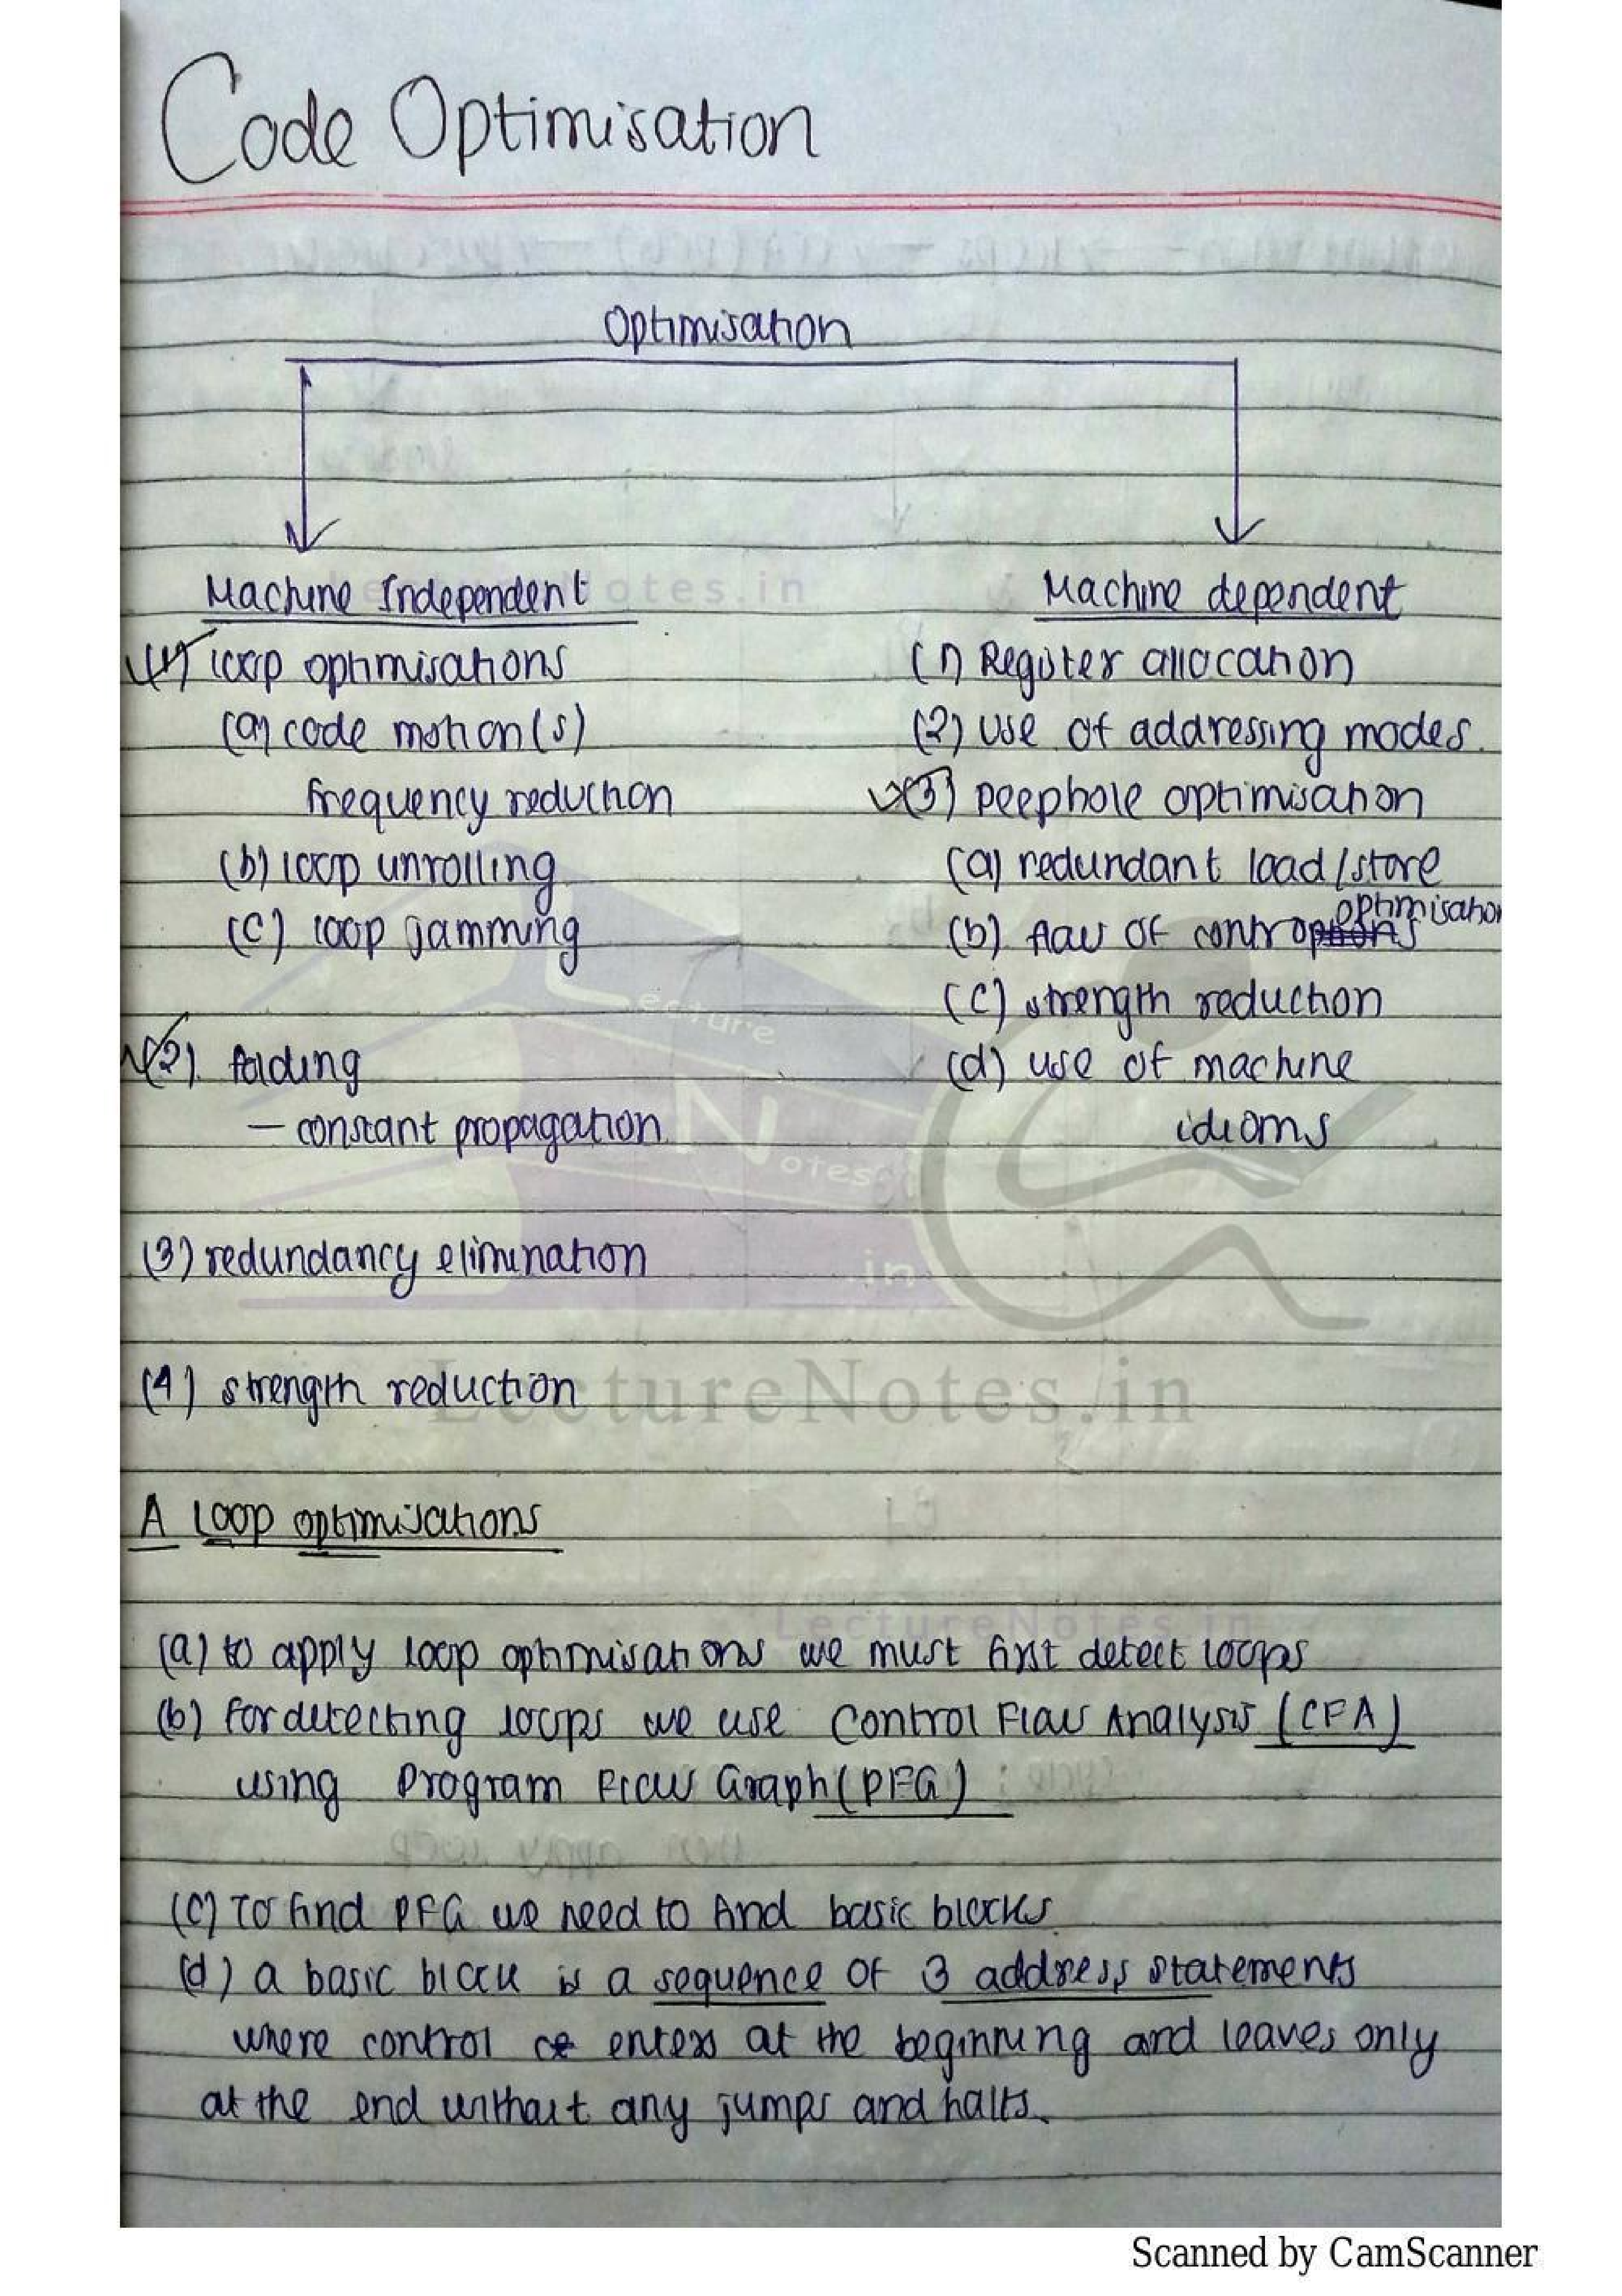 Code Optimisation
Optimisation
Machine Independent
(1) loop optimisations
(a) code motion(s)
frequency reduction
(b) loop unrolling
(c) loop jamming
(2). folding
— constant propagation
(3) redundancy elimination
(4) strength reduction
Machine dependent
(1) Register allocation
(2) use of addressing modes.
(3) peephole optimisation
(a) redundant load/store
(b) flow of control optimisation
(c) strength reduction
(d) use of machine
idioms
A Loop optimisations
(a) to apply loop optimisations we must first detect loops
(b) For detecting loops we use Control Flow Analysis (CFA)
using Program Flow Graph (PFG)
(c) To find PFG we need to find basic blocks
(d) a basic block is a sequence of 3 address statements
where control enters at the beginning and leaves only
at the end without any jumps and halts.
LectureNotes.in
Lecture
Notes
.in
LectureNotes.in
LectureNotes.in
Scanned by CamScanner